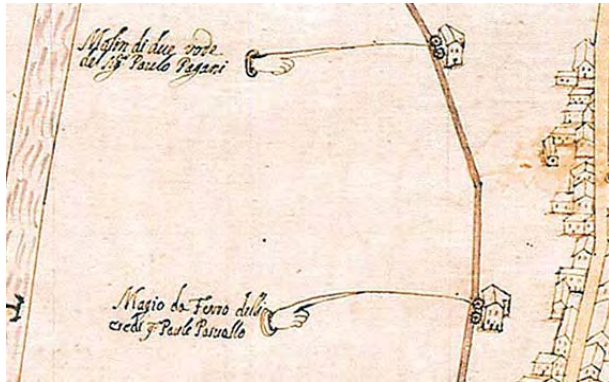 Molin di due rode
del sg.r Paulo Pagani
Magio da Ferro delli
eredi Paulo Pasuallo